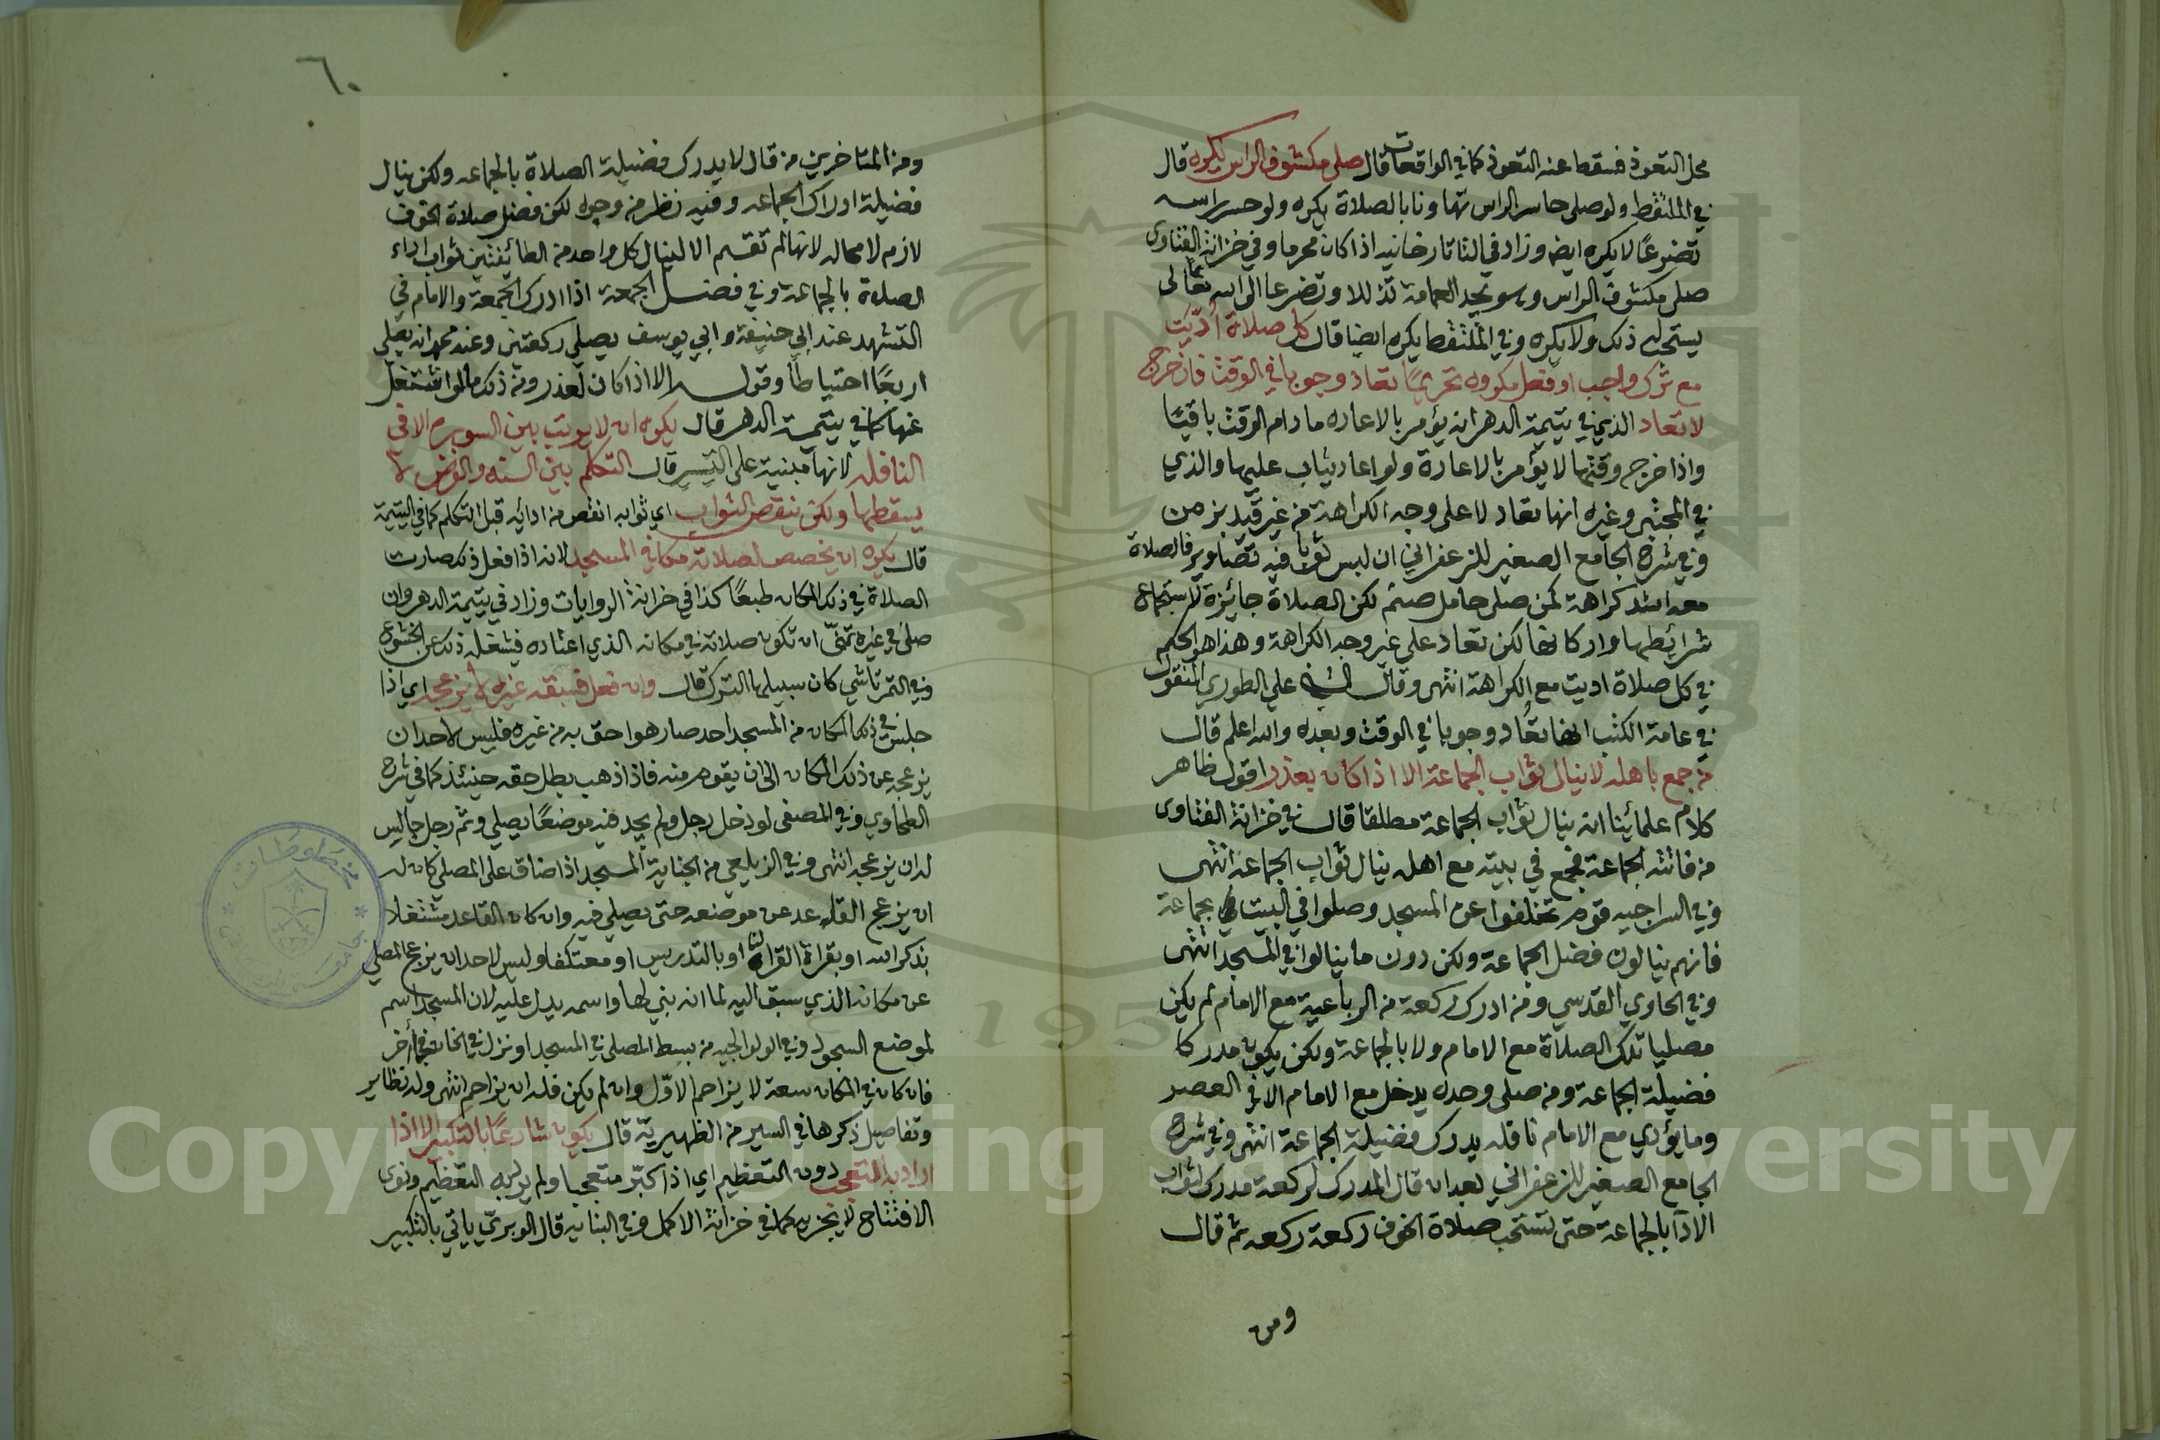 محل التعوذ فسقط عنه التعوذ كما في الواقعات قال صلى مكشوف الراس يكره قال
في الملتقط ولو صلى حاسر الراس تهاونا بالصلاة يكره ولو حسر راسه
تضرعًا لا يكره ايض وزاد في التاتارخانيه اذا كان محرما وفي خزانة الفتاوى
صلى مكشوف الراس وهو يجد العمامة تذللا وتضرعا الى الله تعالى
يستحب ذلك ولا يكره وفي الملتقط يكره ايضا قال كل صلاة أُدّيت
مع ترك واجب او فعل مكروه تحريمًا تعاد وجوبا في الوقت فان خرج
لا تعاد الذي في يتيمة الدهر انه يؤمر بالاعاده ما دام الوقت باقيًا
واذا خرج وقتها لا يؤمر بالاعادة ولو اعاد يثاب عليها والذي
في المجتبى وغيره انها تعاد لا على وجه الكراهة من غير قيد بزمن
وفي شرح الجامع الصغير للزعفراني ان لبس ثوبا فيه تصاوير فالصلاة
معه اشد كراهة كمن صلى حامل صنم لكن الصلاة جائزة لاستجماع
شرائطها واركانها لكن تعاد على غير وجه الكراهة وهذا هو الحكم
في كل صلاة اديت مع الكراهة انتهى وقال الشيخ علي الطوري المنقول
في عامة الكتب انها تعُاد وجوبا في الوقت وبعده والله اعلم قال
من جمع باهله لا ينال ثواب الجماعة الا اذا كان بعذر اقول ظاهر
كلام علمائينا انه ينال ثواب الجماعة مطلقا قال في خزانة الفتاوى
من فاتته الجماعة فجمع في بيته مع اهله ينال ثواب الجماعة انتهى
وفي السراجيه قوم تخلفوا عن المسجد وصلوا في البيت بجماعة
فانهم ينالون فضل الجماعة ولكن دون ما ينالوا في المسجد انتهى
وفي الحاوي القدسي ومن ادرك ركعة من الرباعية مع الامام لم يكن
مصليا تلك الصلاة مع الامام ولا بالجماعة ولكن يكون مدركا
فضيلة الجماعة ومن صلى وحده يدخل مع الامام الا في العصر
وما يؤدي مع الامام نافله يدرك فضيلة الجماعة انتهى وفي شرح
الجامع الصغير للزعفراني بعد ان قال المدرك لركعة مدرك لثواب
الادآ بالجماعة حتى تستحب صلاة الخوف ركعة ركعه ثم قال
ومن
٦٠
ومن المتاخرين من قال لا يدرك فضيلة الصلاة بالجماعه ولكن ينال
فضيلة ادراك الجماعه وفيه نظر من وجوه لكن فضل صلاة الخوف
لازم لا محاله لانها لم تقسم الا لينال كل واحد من الطائفتين ثواب اداء
الصلاة بالجماعة وفي فضل الجمعة اذا ادرك الجمعة والامام في
التشهد عند ابي حنيفة وابي يوسف يصلي ركعتين وعند محمد انه يصلي
اربعًا احتياطًا وقوله الا اذا كان لعذر ومن ذلك ما لو اشتغل
عنها كما في يتيمة الدهر قال يكره ان لا يرتب بين السور الا في
النافله لانها مبنية على التيسير قال التكلم بين السنه والفرض لا
يسقطها ولكن ينقص الثواب اي ثوابه انقص من ادائه قبل التكلم كما في اليتيمة
قال يكره ان يخصص لصلاته مكانا في المسجد لانه اذا فعل ذلك صارت
الصلاة في ذلك المكان طبعًا كذا في خزانة الروايات وزاد في يتيمة الدهر وان
صلى في غيره تمنى ان تكون صلاته في مكانه الذي اعتاده فيشغله ذلك عن الخشوع
وفي التمرتاشي كان سبيلها الترك قال وان فعل فسبقه غيره لا يزعجه اي اذا
جلس في ذلك المكان من المسجد احد صار هو احق به من غيره فليس لاحد ان
يزعجه عن ذلك المكان الى ان يقوم منه فاذا ذهب بطل حقه حينئذ كما في شرح
الطحاوي وفي المصفى لو دخل رجل ولم يجد فيه موضعًا يصلي وثم رجل جالس
له ان يزعجه انتهى وفي الزيلعي من الجناية المسجد اذا ضاق على المصلي كان له
ان يزعج القاعد عن موضعه حتى يصلي فيه وان كان القاعد مشتغلا
بذكر الله او بقراة القران او بالتدريس او معتكفا وليس لاحد ان يزعج المصلي
عن مكانه الذي سبق اليه لما انه بني لها واسمه يدل عليه لان المسجد اسم
لموضع السجود وفي الولوالجيه من بسط المصلى في المسجد او نزل في الخان فجا آخر
فان كان في المكان سعة لا يزاحم الاوّل وان لم يكن فله ان يزاحم انتهى وله نظاير
وتفاصيل ذكرها في السير من الظهيرية قال يكون شارعًا بالتكبير الا اذا
اراد به التعجب دون التعظيم اي اذا كبّر متعجبا ولم يرد به التعظيم ونوى
الافتتاح لا يجزيه كما في خزانة الاكمل وفي البنايه قال الوبريّ ياتي بالتكبير
Copyright © King Saud University
195